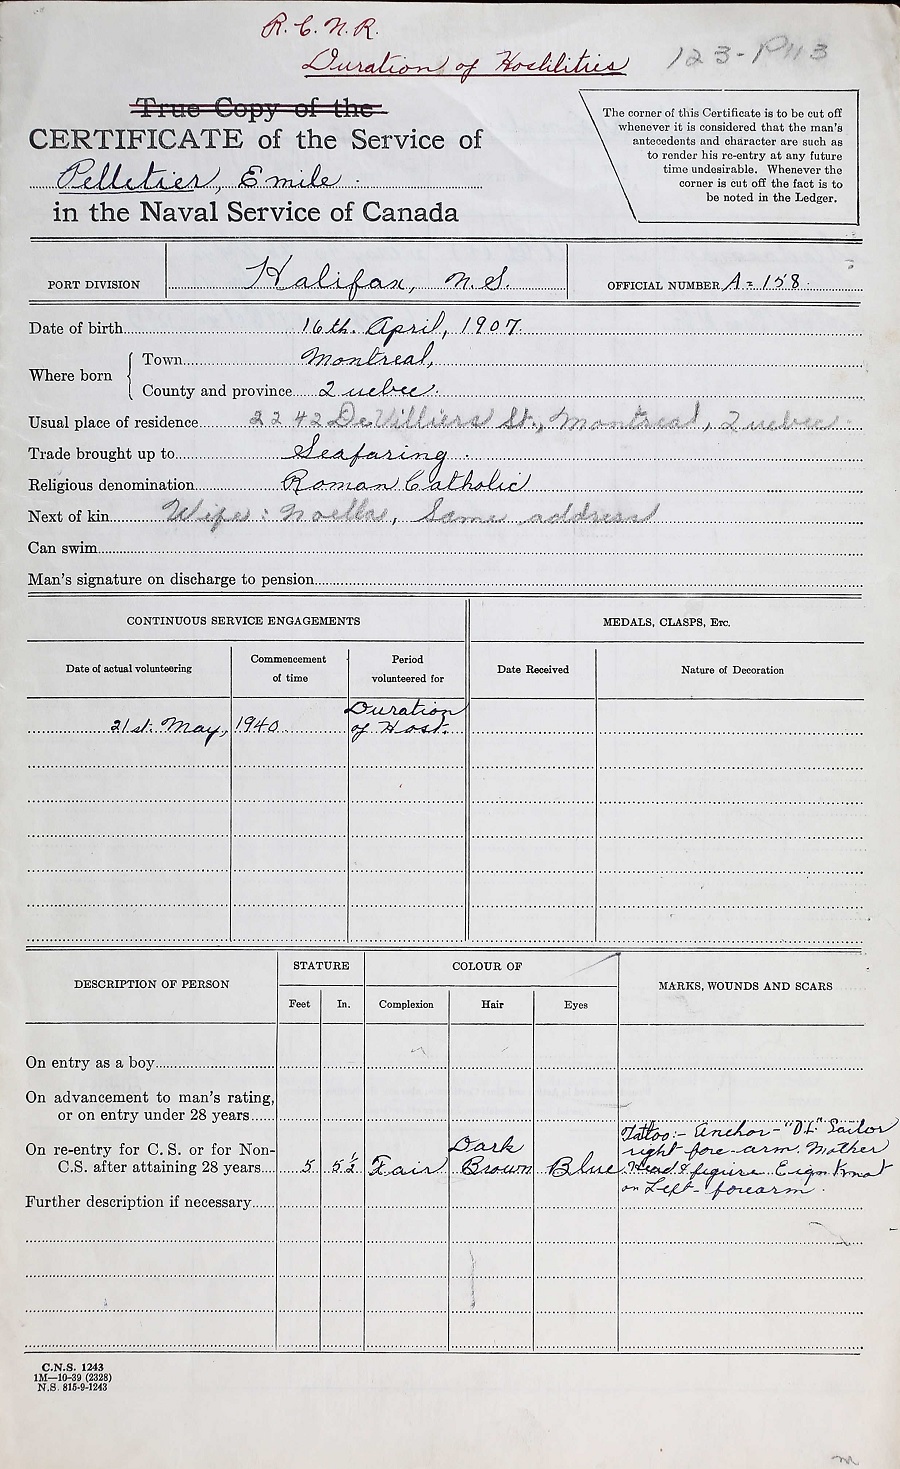 R.C.N.R.
Duration of Hostilities 123-P113
True Copy of the
CERTIFICATE of the Service of
Pelletier, Emile.
in the Naval Service of Canada
The corner of this Certificate is to be cut off
whenever it is considered that the man's
antecedents and character are such as
to render his re-entry at any future
time undesirable. Whenever the
corner is cut off the fact is to
be noted in the Ledger.
PORT DIVISION Halifax, N.S. OFFICIAL NUMBER A-158.
Date of birth 16th. April, 1907.
Where born Town Montreal,
County and province Quebec.
Usual place of residence 2242 DeVilliers St., Montreal, Quebec.
Trade brought up to Seafaring.
Religious denomination Roman Catholic
Next of kin Wife: Noella, Same address
Can swim
Man's signature on discharge to pension
CONTINUOUS SERVICE ENGAGEMENTS MEDALS, CLASPS, Etc.
Date of actual volunteering Commencement of time Period volunteered for Date Received Nature of Decoration
21st. May, 1940. Duration of Host.
DESCRIPTION OF PERSON STATURE COLOUR OF MARKS, WOUNDS AND SCARS
Feet In. Complexion Hair Eyes
On entry as a boy
On advancement to man's rating,
or on entry under 28 years
On re-entry for C. S. or for Non-
C.S. after attaining 28 years 5 5½ Fair Dark Brown Blue
Tattoo:- Anchor-"D.L." Sailor
right fore-arm. Mother
Head & figure
on Left-forearm.
Further description if necessary
C.N.S. 1243
1M—10-39 (2328)
N.S. 815-9-1243